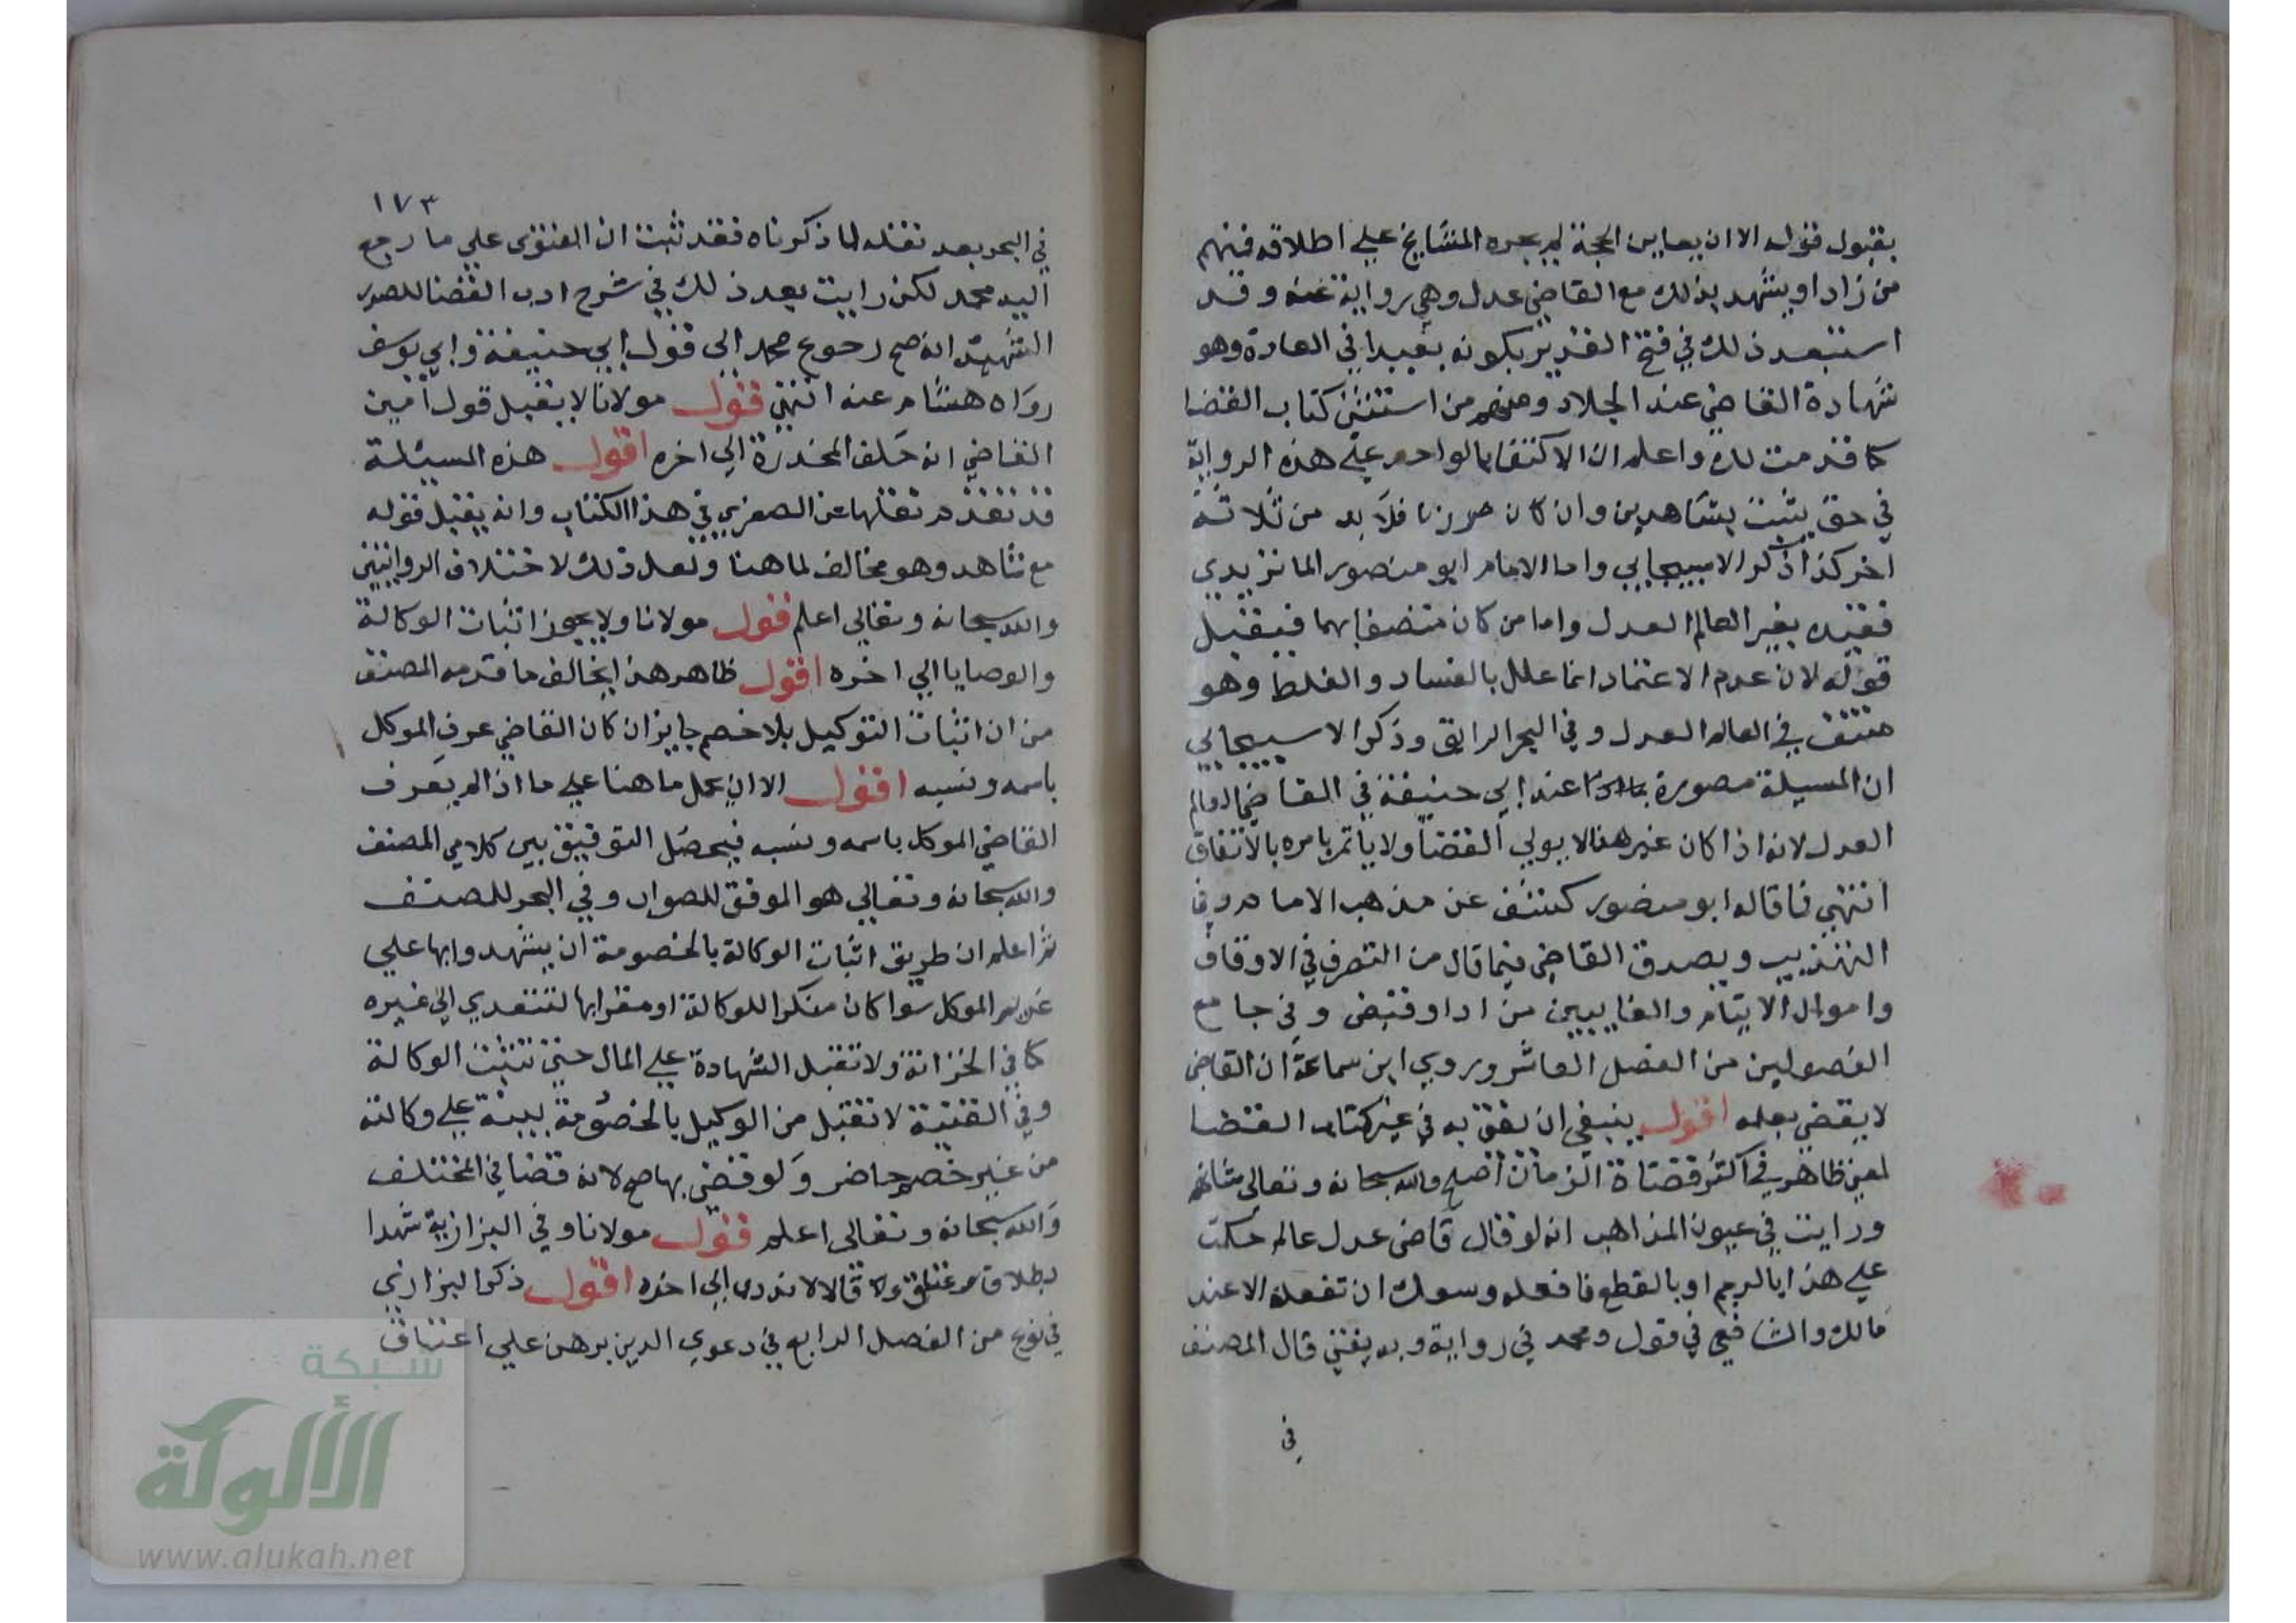 بقبول قوله الا ان يعاين الحجة لم يجره المشايخ على اطلاقه فمنهم
من زاد او يشهد بذلك مع القاضي عدل وهي رواية عنه وقد
استبعد ذلك في فتح القدير بكونه بعيدا في العادة وهو
شهادة القاضي عند الجلاد ومنهم من استثنى كتاب القضا
كما قدمت لك واعلم ان الاكتفا بالواحد على هذه الرواية
في حق يثبت بشاهدين وان كان في زنا فلا بد من ثلاثة
اخر كذا ذكر الاسبيجابي واما الامام ابو منصور الماتريدي
فقيده بغير العالم العدل واما من كان متصفا بهما فيقبل
قوله لان عدم الاعتماد انما علل بالفساد والغلط وهو
منتف في العالم العدل وفي البحر الرايق وذكر الاسبيجابي
ان المسيلة مصورة عند ابي حنيفة في القاضي العالم
العدل لانه اذا كان غير هذا لا يولي القضا ولا ياتمر بامره بالاتفاق
انتهي فما قاله ابو منصور كشف عن مذهب الامام وفي
التهذيب ويصدق القاضي فيما قال من التصرف في الاوقاف
واموال الايتام والغايبين من ادا وقبض وفي جامع
الفصولين من الفصل العاشر وروي ابن سماعة ان القاضي
لا يقضي بعلمه اقول ينبغي ان يفتى به في غير كتاب القضا
لمعنى ظاهر في اكثر قضاة الزمان اصلح والله سبحانه وتعالى شانهم
ورايت في عيون المذاهب انه لو قال قاضي عدل عالم حكمت
على هذا بالرجم او بالقطع فافعله وسعك ان تفعله الا عند
مالك والشافعي في قول ومحمد في رواية وبه يفتي قال المصنف
في
١٧٣
في البحر بعد نقله لما ذكرناه فقد ثبت ان الفتوى علي ما رجع
اليه محمد لكن رايت بعد ذلك في شرح ادب القضا للصدر
الشهيد انه صح رجوع محمد الى قول ابي حنيفة وابي يوسف
رواه هشام عنه انتهي قوله مولانا لا يقبل قول امين
القاضي انه حلف المخدرة الي اخره اقول هذه المسيلة
قد تقدم نقلها عن الصغري في هذا الكتاب وانه يقبل قوله
مع شاهد وهو مخالف لما هنا ولعل ذلك لاختلاف الروايتين
والله سبحانه وتعالي اعلم قوله مولانا ولا يجوز اثبات الوكالة
والوصايا الي اخره اقول ظاهر هذا يخالف ما قدمه المصنف
من ان اثبات التوكيل بلا خصم جايز ان كان القاضي عرف الموكل
باسمه ونسبه اقول الا ان يحمل ما هنا على ما اذا لم يعرف
القاضي الموكل باسمه ونسبه فيحصل التوفيق بين كلامي المصنف
والله سبحانه وتعالي هو الموفق للصواب وفي البحر للمصنف
ثم اعلم ان طريق اثبات الوكالة بالخصومة ان يشهدوا بها علي
غريم الموكل سوا كان منكرا للوكالة او مقرا بها لتتعدي الى غيره
كما في الخزانة ولا تقبل الشهادة على المال حتى تثبت الوكالة
وفي القنية لا تقبل من الوكيل بالخصومة بينة على وكالته
من غير خصم حاضر ولو قضى بها صح لانه قضا في المختلف
والله سبحانه وتعالى اعلم قوله مولانا وفي البزازية شهدا
بطلاق او عتاق وقالا لا ندري الي اخره اقول ذكر البزازي
في نوع من الفصل الرابع في دعوي الدين برهن علي اعتاق
شبكة
الألوكة
www.alukah.net